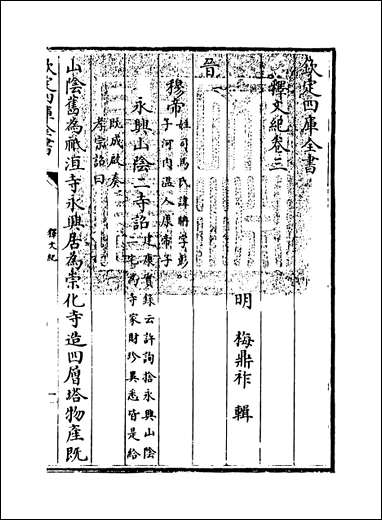 欽定四庫全書
釋文紀卷三
明 梅鼎祚 輯
晉
穆帝 姓司馬氏諱聃字彭
子河内溫人康帝子
永興山陰二寺詔 建康實錄云許詢捨永興山陰
二宅為寺家財珍異悉皆是給
既成啟奏
孝宗詔曰
山陰舊為祗洹寺永興居為崇化寺造四層塔物產既
欽定四庫全書
釋文紀
一